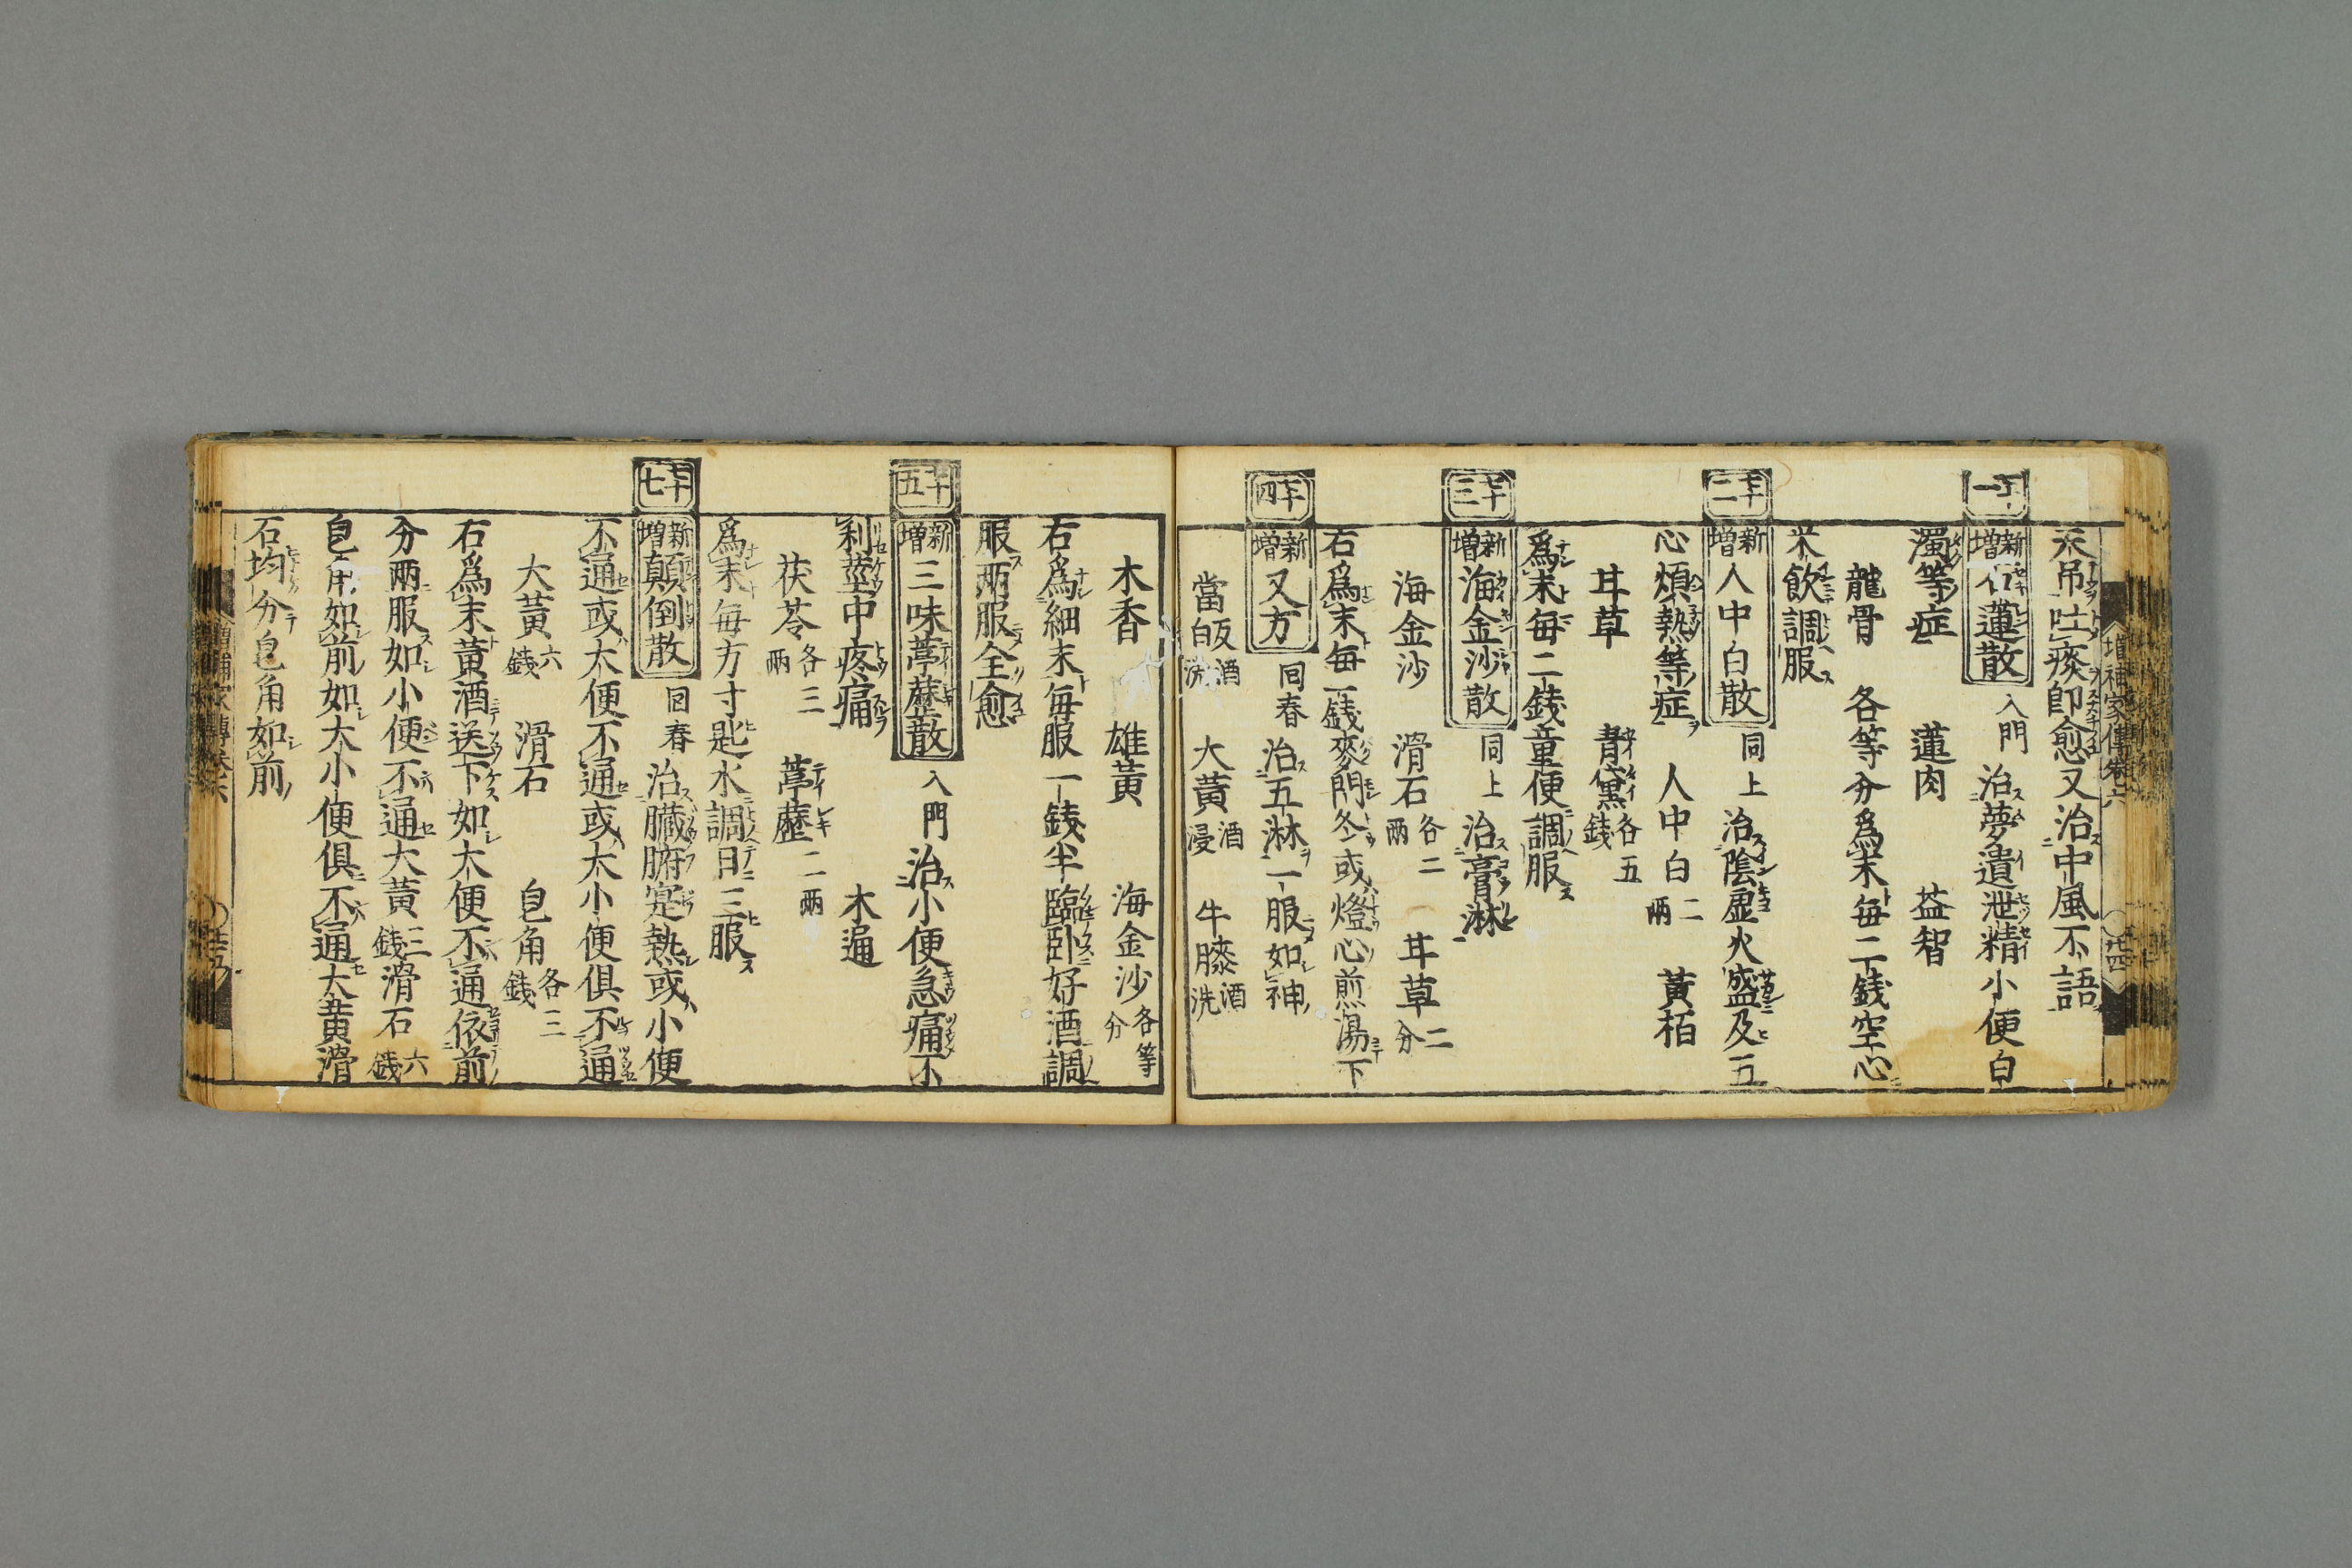 天吊吐痰即愈又治中風不語
新増 石蓮散 入門 治夢遺泄精小便白
濁等症 蓮肉 益智
龍骨 各等分爲末毎二錢空心
米飲調服
二十二 新増 人中白散 同上 治陰虛火盛及五
心煩熱等症 人中白二兩 黃栢
甘草 青黛各五錢
爲末毎二錢童便調服
二十三 新増 海金沙散 同上 治膏淋
海金沙 滑石各二兩 甘草二分
右爲末毎一錢麥門冬或燈心煎湯下
二十四 新増 又方 回春 治五淋一服如神
當皈酒洗 大黃酒浸 牛膝酒洗
木香 雄黃 海金沙各等分
右爲細末毎服一錢半臨臥好酒調
服兩服全愈
二十五 新増 三味葶藶散 入門 治小便急痛不
利莖中疼痛 木通
茯苓各三兩 葶藶二兩
爲末毎方寸匙水調日三服
二十七 新増 顛倒散 回春 治臟腑寔熱或小便
不通或大便不通或大小便俱不通
大黃六錢 滑石 皂角各三錢
右爲末黃酒送下如大便不通依前
分兩服如小便不通大黃三錢滑石六錢
皂角如前如大小便俱不通大黃滑
石均分皂角如前